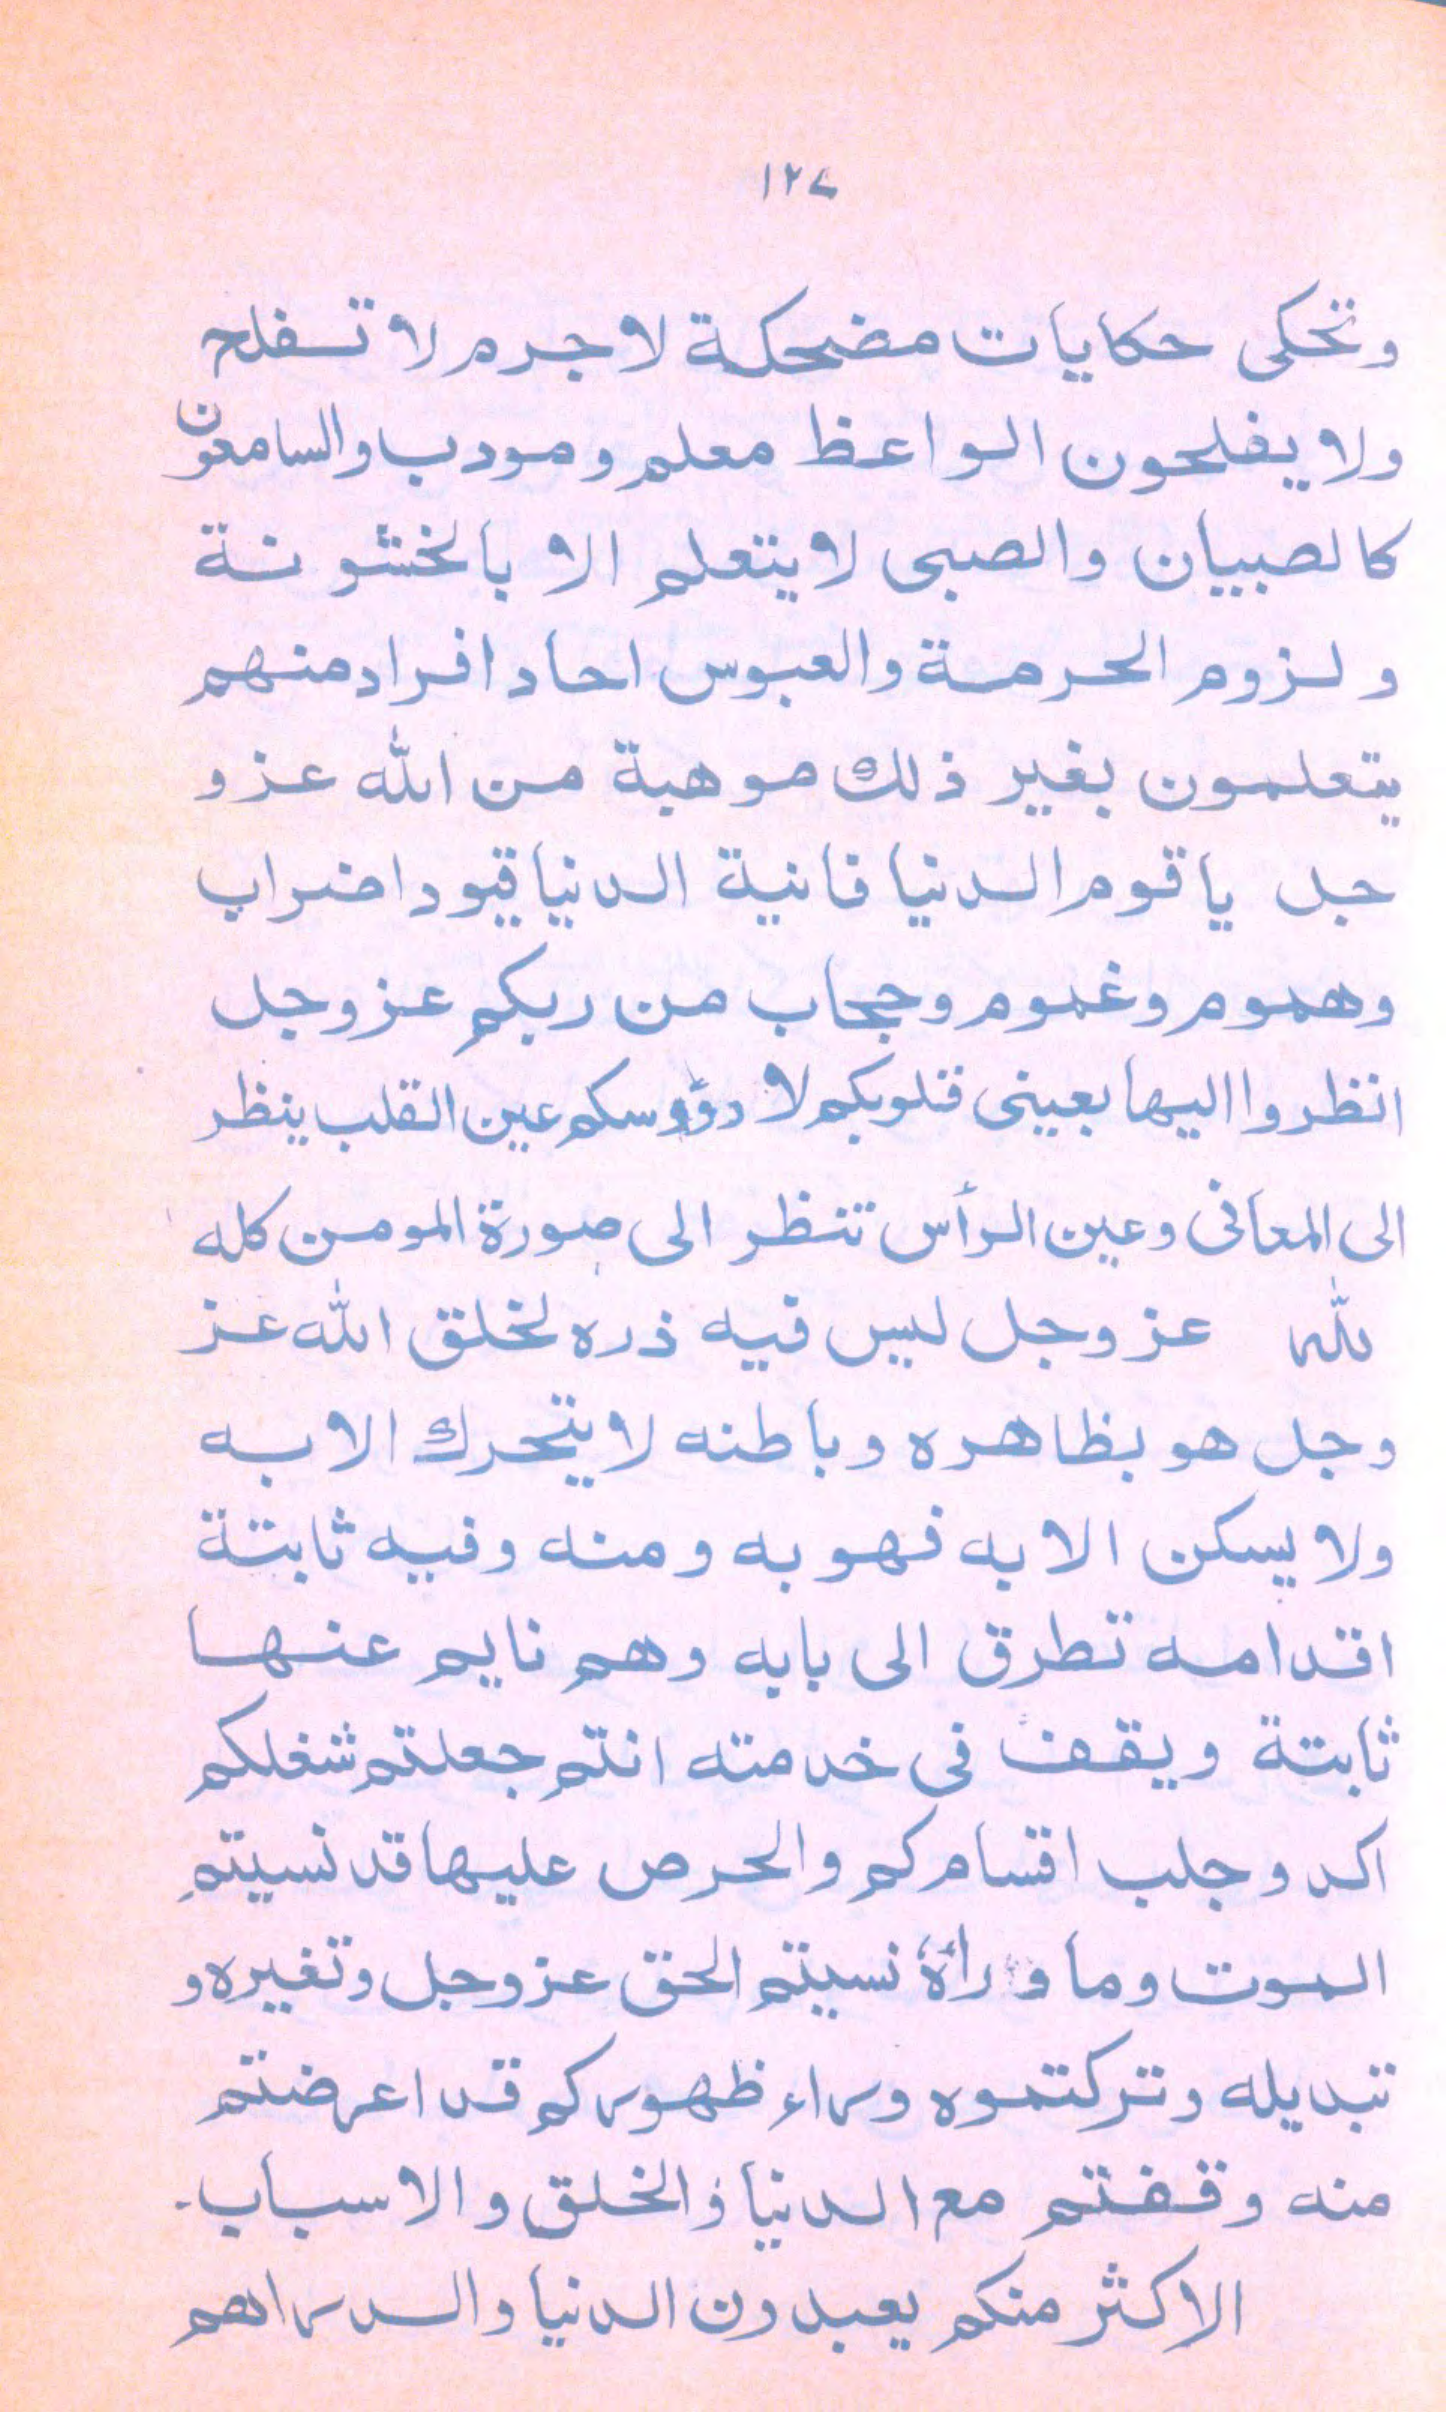 ١٢٧
وتحكى حكايات مضحكة لاجرم لا تفلح
ولا يفلحون الواعظ معلم ومودب والسامعون
كالصبيان والصبى لا يتعلم الا بالخشونة
ولزوم الحرمة والعبوس احاد افراد منهم
يتعلمون بغير ذلك موهبة من الله عز و
جل ياقوم الدنيا فانية الدنيا قيود اضراب
وهموم وغموم وحجاب من ربكم عز وجل
انظروا اليها بعينى قلوبكم لا رؤوسكم عين القلب ينظر
الى المعانى وعين الرأس تنظر الى صورة المومن كله
لله عز وجل ليس فيه ذره لخلق الله عز
وجل هو بظاهره وباطنه لا يتحرك الا به
ولا يسكن الا به فهو به ومنه وفيه ثابتة
اقدامه تطرق الى بابه وهم نايم عنها
ثابتة ويقف فى خدمته انتم جعلتم شغلكم
اكد وجلب اقسامكم والحرص عليها قد نسيتم
الموت وما ورأة نسيتم الحق عز وجل وتغيره و
تبديله وتركتموه وراء ظهوركم قد اعرضتم
منه وقفتم مع الدنيا والخلق والاسباب۔
الاكثر منكم يعبدون الدنيا والدراهم